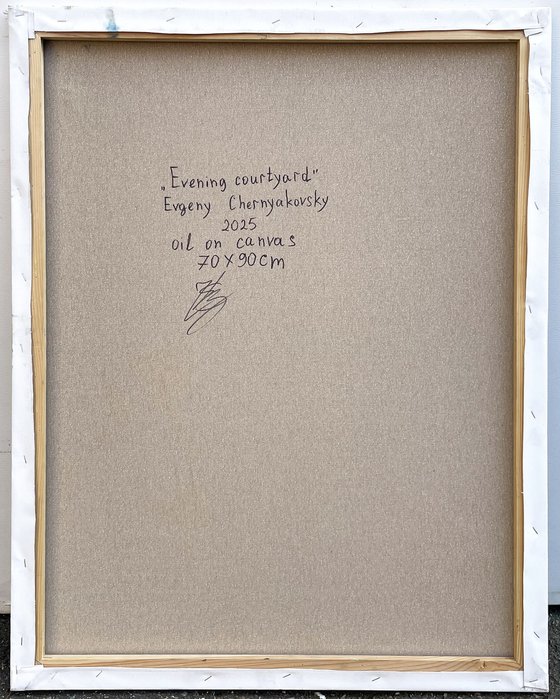 „Evening courtyard"
Evgeny Chernyakovsky
2025
oil on canvas
70x90cm